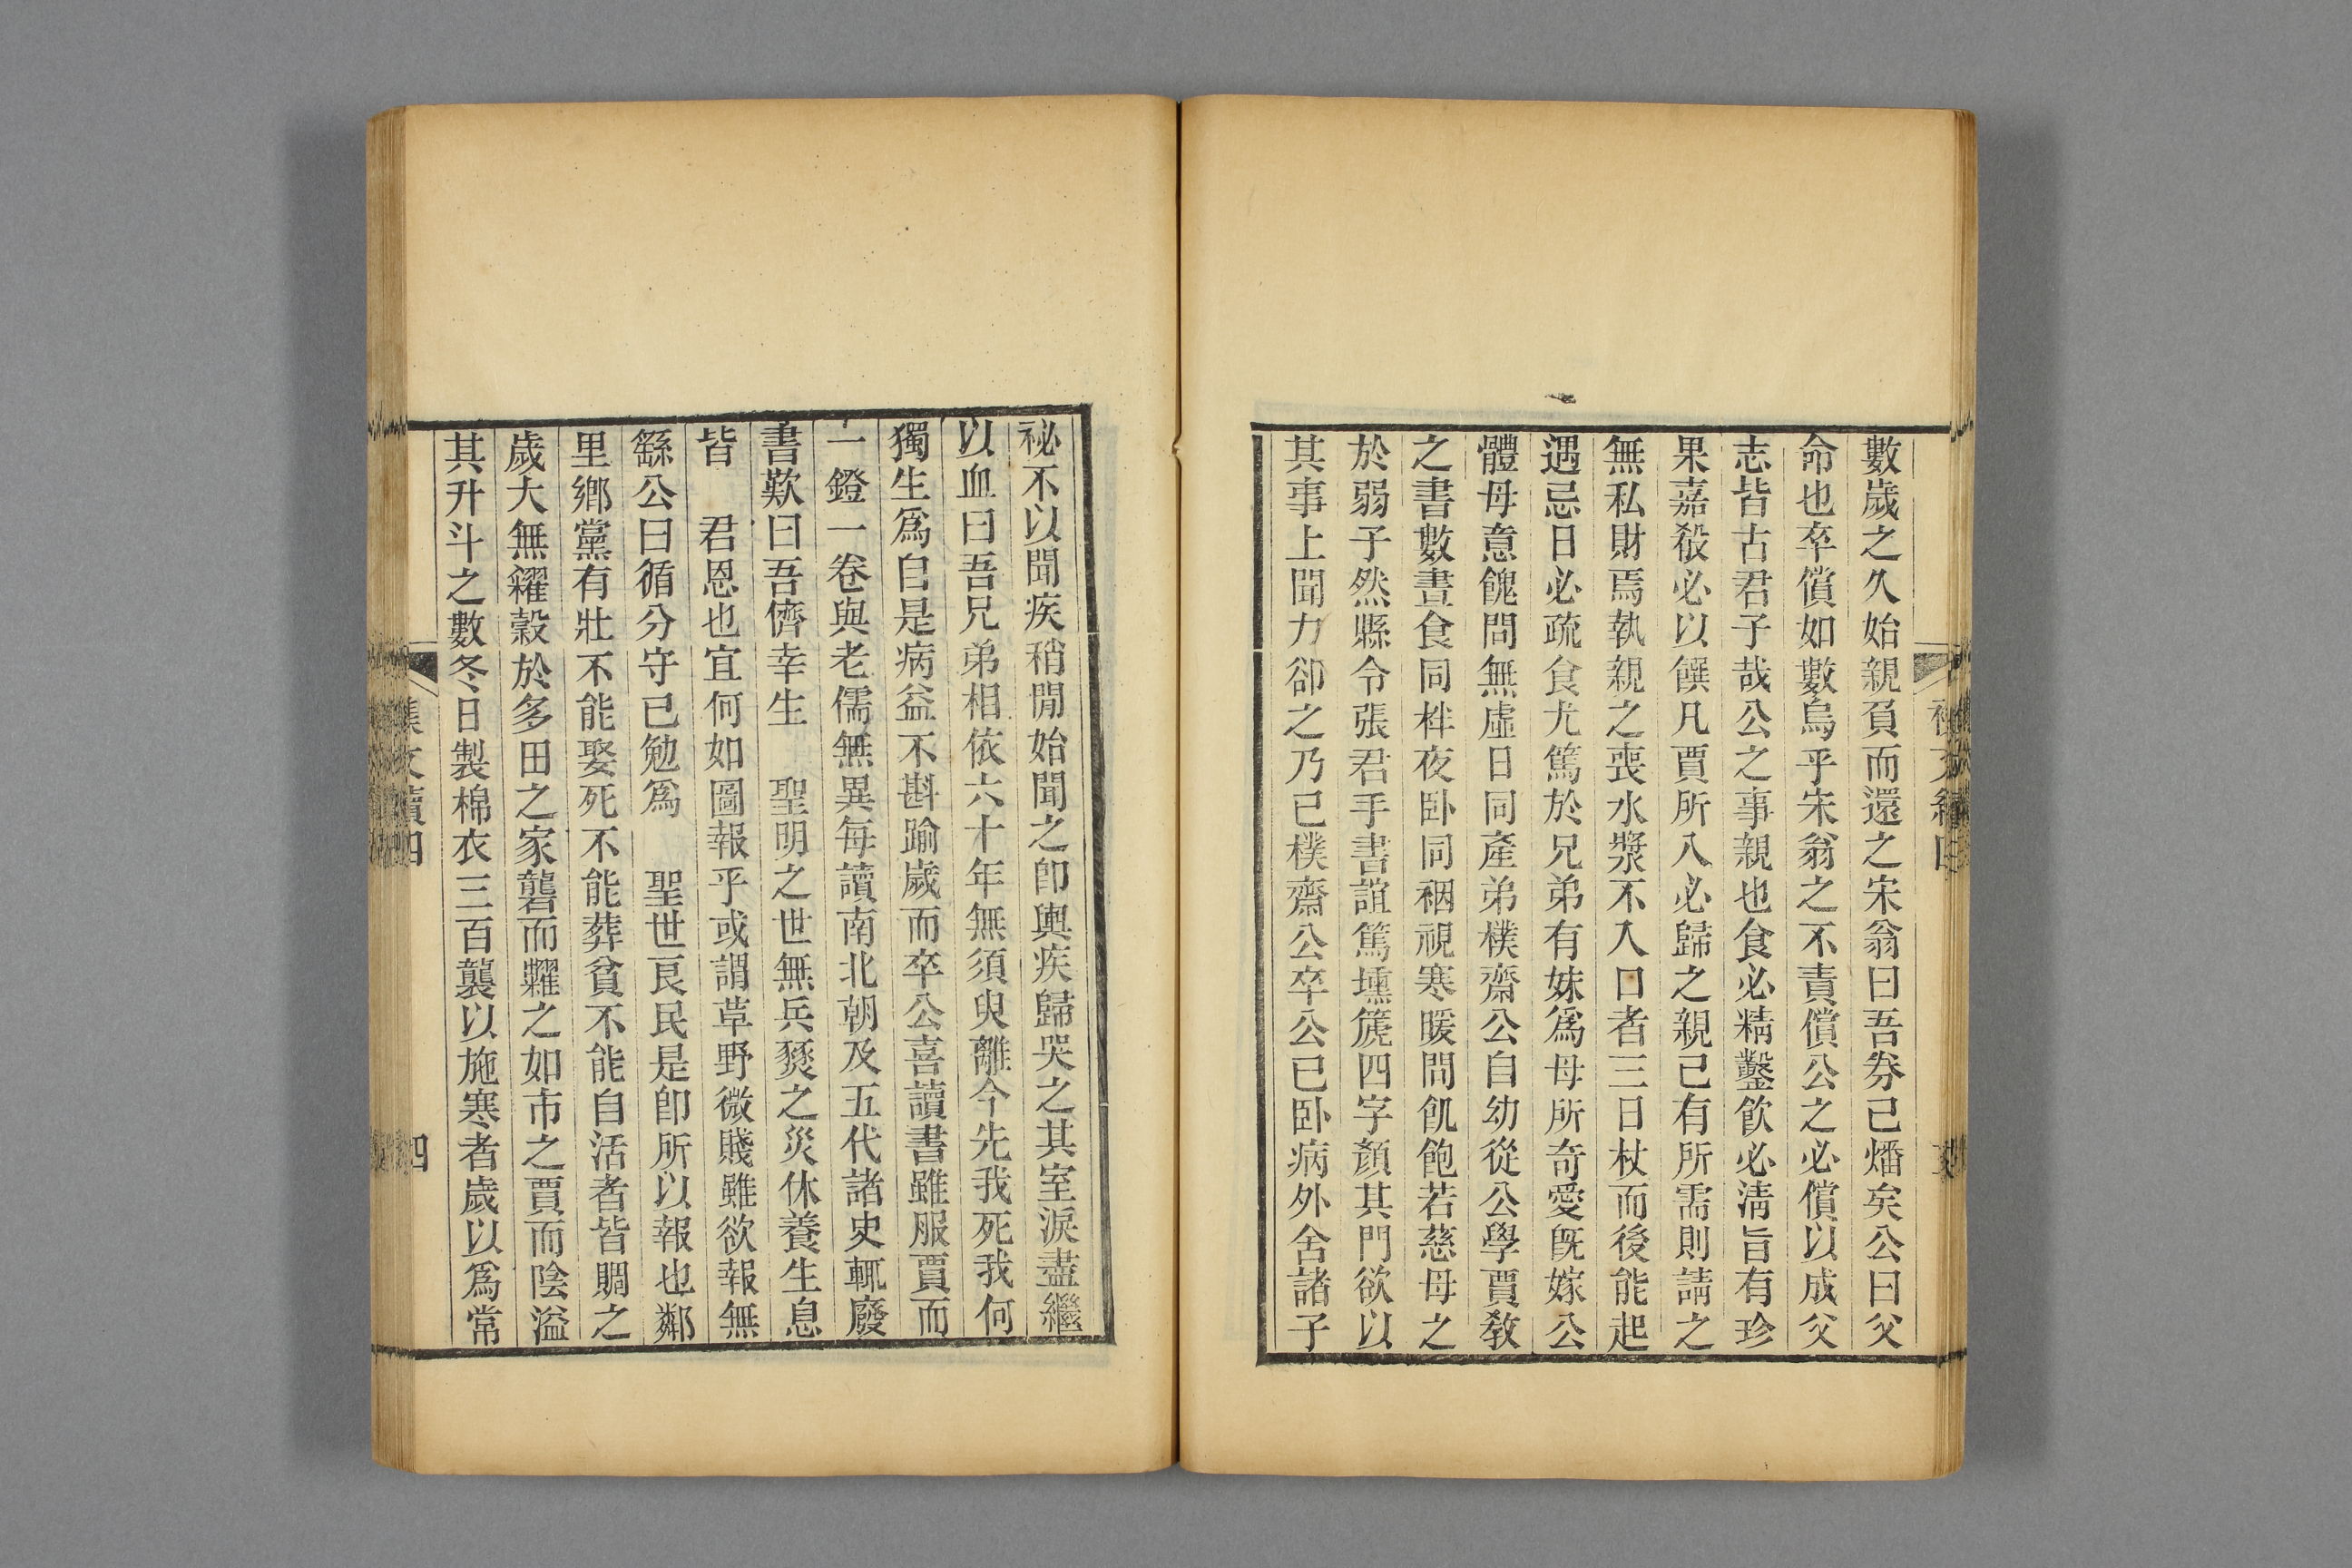 數歲之久始親負而還之宋翁曰吾券已燔矣公曰父
命也卒償如數烏乎宋翁之不責償公之必償以成父
志皆古君子哉公之事親也食必精鑿飲必淸旨有珍
果嘉殽必以饌凡賈所入必歸之親己有所需則請之
無私財焉執親之喪水漿不入口者三日杖而後能起
遇忌日必疏食尤篤於兄弟有妹爲母所奇愛旣嫁公
體母意餽問無虛日同產弟樸齋公自幼從公學賈敎
之書數晝食同柈夜卧同裀視寒暖問飢飽若慈母之
於弱子然縣令張君手書誼篤壎篪四字顏其門欲以
其事上聞力卻之乃已樸齋公卒公已卧病外舍諸子
祕不以聞疾稍閒始聞之卽輿疾歸哭之其室淚盡繼
以血曰吾兄弟相依六十年無須臾離今先我死我何
獨生爲自是病益不斟踰歲而卒公喜讀書雖服賈而
一鐙一卷與老儒無異每讀南北朝及五代諸史輒廢
書歎曰吾儕幸生　聖明之世無兵燹之災休養生息
皆　君恩也宜何如圖報乎或謂草野微賤雖欲報無
繇公曰循分守己勉爲　聖世良民是卽所以報也鄰
里鄉黨有壯不能娶死不能葬貧不能自活者皆賙之
歲大無糴穀於多田之家礱而糶之如市之賈而陰溢
其升斗之數冬日製棉衣三百襲以施寒者歲以爲常
集文續四
四